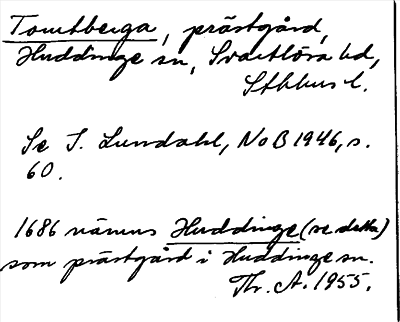 Tomtberga, prästgård,
Huddinge sn, Svartlösa hd,
Sthlms l.
Se I. Lundahl, NoB 1946, s.
60.
1686 nämns Huddinge (se detta)
som prästgård i Huddinge sn.
Th. A. 1955.